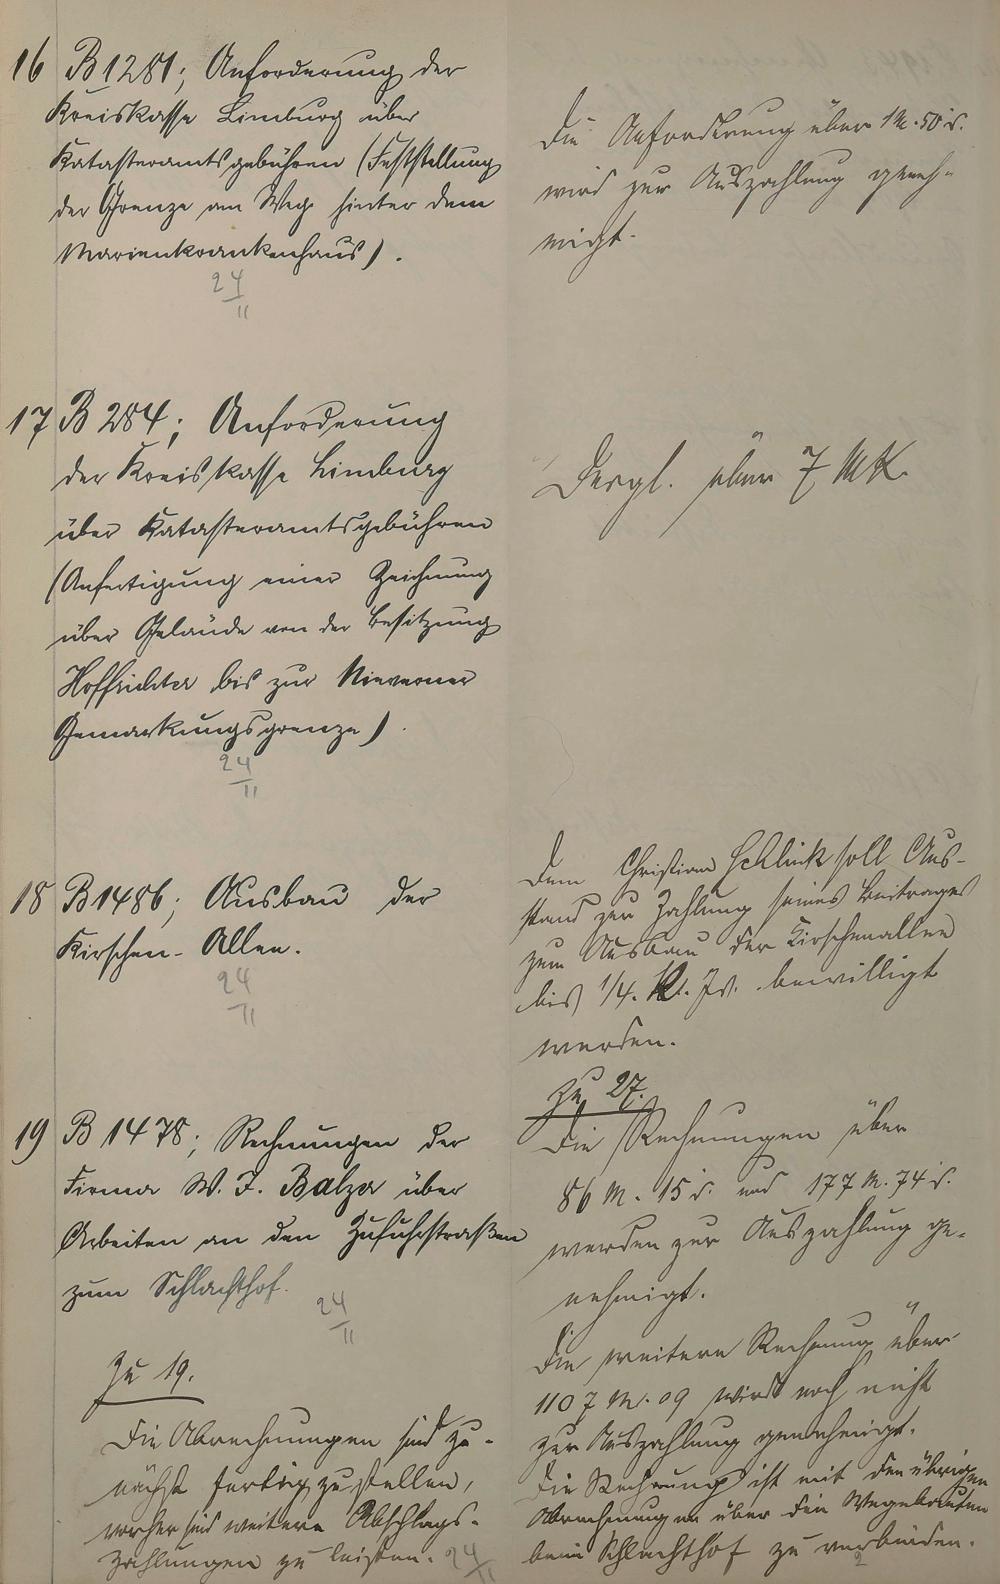 16 B 1281; Anforderung der
Kreiskasse Limburg über
Katasteramtsgebühren (Feststellung
der Grenze am Weg hinter dem
Marienkrankenhaus).
24/II
Die Anforderung über M. 50 d.
wird zur Auszahlung geneh-
migt.
17 B 284; Anforderung
der Kreiskasse Limburg
über Katasteramtsgebühren
(Anfertigung einer Zeichnung
über Gelände von der Besitzung
Hoffrichter bis zur Nieverner
Gemarkungsgrenze).
24/II
Desgl. über 7 MK.
18 B 1486; Ausbau der
Kirschen-Allee.
24/II
Dem Christian Schlink soll Aus-
stand zur Zahlung seines Beitrages
zum Ausbau der Kirschenallee
bis 1/4. Js. bewilligt
werden.
19 B 1478; Rechnungen der
Firma W. J. Balzer über
Arbeiten an den Zufuhrstraßen
zum Schlachthof.
24/II
Zu 19.
Die Abrechnungen sind zu-
nächst fertig zu stellen,
vorher sind weitere Abschlags-
zahlungen zu leisten. 24/II
Zu 27.
Die Rechnungen über
86 M. 15 d. und 177 M. 74 d.
werden zur Auszahlung ge-
nehmigt.
Die weitere Rechnung über
1107 M. 09 wird noch nicht
zur Auszahlung genehmigt.
Die Rechnung ist mit den übrigen
Abrechnungen über die Wegebauten
beim Schlachthof zu verbinden.